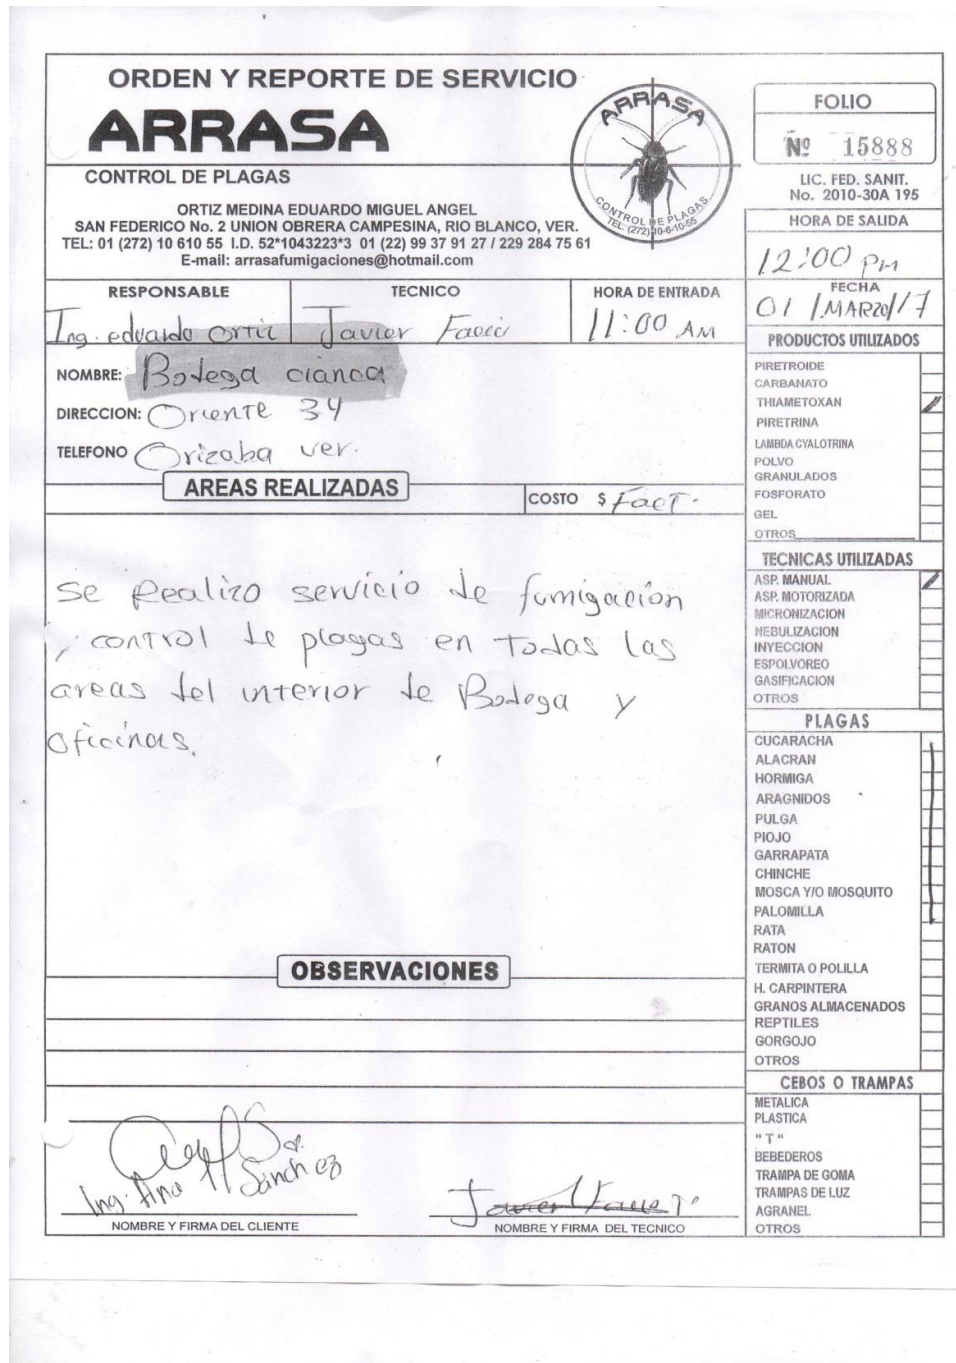 ORDEN Y REPORTE DE SERVICIO
ARRASA
CONTROL DE PLAGAS
ORTIZ MEDINA EDUARDO MIGUEL ANGEL
SAN FEDERICO No. 2 UNION OBRERA CAMPESINA, RIO BLANCO, VER.
TEL: 01 (272) 10 610 55 I.D. 52*1043223*3 01 (22) 99 37 91 27 / 229 284 75 61
E-mail: arrasafumigaciones@hotmail.com
ARRASA
CONTROL DE PLAGAS
TEL: (272) 10-6-10-55
FOLIO
Nº 15888
LIC. FED. SANIT.
No. 2010-30A 195
HORA DE SALIDA
12:00 PM
FECHA
01 / MARZO / 17
RESPONSABLE
Ing. eduardo Ortiz
TECNICO
Javier
HORA DE ENTRADA
11:00 AM
NOMBRE: Bodega cianca
DIRECCION: Oriente 34
TELEFONO Orizaba ver.
AREAS REALIZADAS
COSTO $ Fact.
se Realizo servicio de fumigación
y control de plagas en Todas las
areas del interior de Bodega y
oficinas.
OBSERVACIONES
Ing. Ana Sánchez
NOMBRE Y FIRMA DEL CLIENTE
Javier
NOMBRE Y FIRMA DEL TECNICO
PRODUCTOS UTILIZADOS
PIRETROIDE
CARBANATO
THIAMETOXAN
PIRETRINA
LAMBDA CYALOTRINA
POLVO
GRANULADOS
FOSFORATO
GEL
OTROS
TECNICAS UTILIZADAS
ASP. MANUAL
ASP. MOTORIZADA
MICRONIZACION
NEBULIZACION
INYECCION
ESPOLVOREO
GASIFICACION
OTROS
PLAGAS
CUCARACHA
ALACRAN
HORMIGA
ARAGNIDOS
PULGA
PIOJO
GARRAPATA
CHINCHE
MOSCA Y/O MOSQUITO
PALOMILLA
RATA
RATON
TERMITA O POLILLA
H. CARPINTERA
GRANOS ALMACENADOS
REPTILES
GORGOJO
OTROS
CEBOS O TRAMPAS
METALICA
PLASTICA
" T "
BEBEDEROS
TRAMPA DE GOMA
TRAMPAS DE LUZ
AGRANEL
OTROS